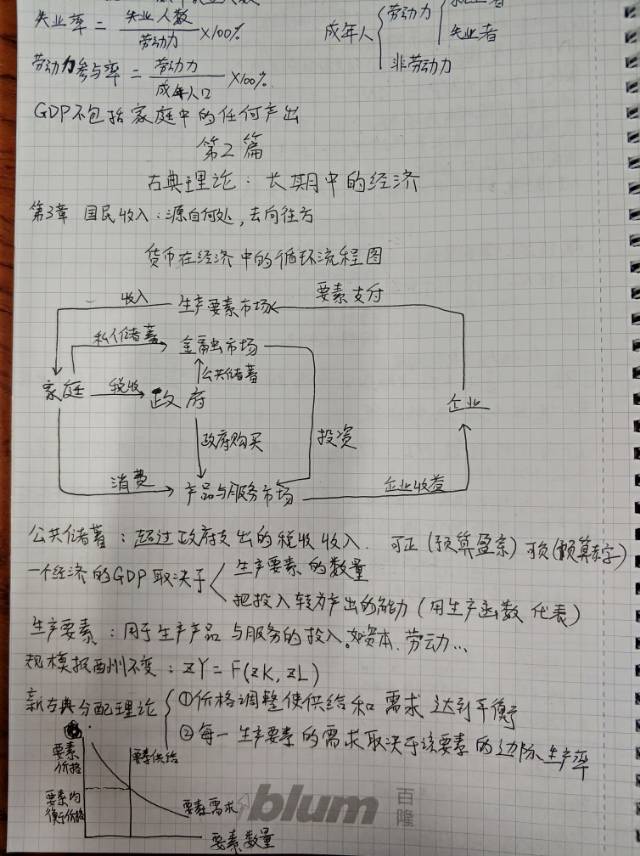 失业率 = 失业人数/劳动力 ×100%
成年人 { 劳动力 { 失业者
非劳动力
劳动力参与率 = 劳动力/成年人口 ×100%
GDP不包括家庭中的任何产出
第2篇
古典理论:长期中的经济
第3章 国民收入:源自何处,去向往方
货币在经济中的循环流程图
收入 生产要素市场 要素支付
私人储蓄 金融市场
公共储蓄
家庭 税收 政府 企业
政府购买 投资
消费 产品与服务市场 企业收益
公共储蓄:超过政府支出的税收收入. 可正(预算盈余)可负(预算赤字)
一个经济的GDP取决于 生产要素的数量
把投入转为产出的能力(用生产函数代表)
生产要素:用于生产产品与服务的投入。如资本.劳动...
规模报酬不变:zY=F(zK,zL)
新古典分配理论 ①价格调整使供给和需求达到平衡
②每一生产要素的需求取决于该要素的边际生产率
要素价格 要素供给
要素均衡价格
要素需求
blum 百隆
要素数量